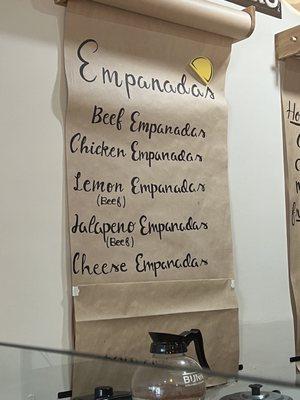 Empanadas
Beef Empanadas
Chicken Empanadas
Lemon Empanadas
(Beef)
Jalapeno Empanadas
(Beef)
Cheese Empanadas
BUNN